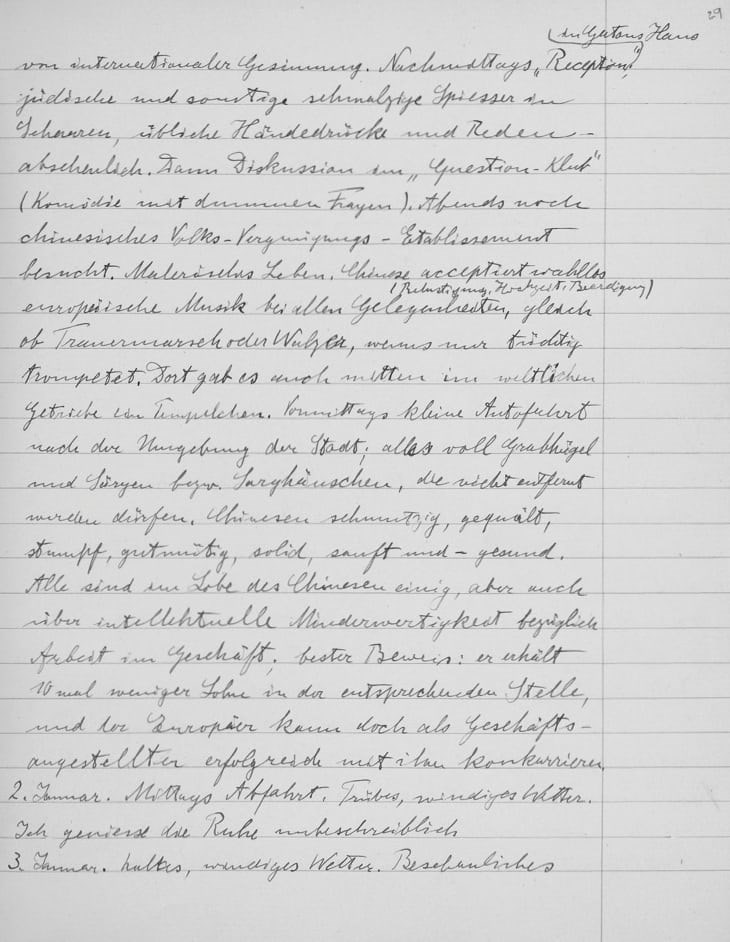 29
(in Gattons Haus
von internationaler Gesinnung. Nachmittags „Reception",
jüdische und sonstige schmalzige Spiesser in
Scharen, übliche Händedrücke und Reden –
abscheulich. Dann Diskussion im „Question-Klub"
(Komödie mit dummen Fragen). Abends noch
chinesisches Volks-Vergnügungs-Etablissement
besucht. Malerisches Leben. Chinese acceptiert wahllos
(Belustigung, Hochzeit, Beerdigung)
europäische Musik bei allen Gelegenheiten, gleich
ob Trauermarsch oder Walzer, wenns nur tüchtig
trompetet. Dort gab es auch mitten im weltlichen
Getriebe ein Tempelchen. Vormittags kleine Autofahrt
nach der Umgebung der Stadt; alles voll Grabhügel
und Särgen bezw. Sarghäuschen, die nicht entfernt
werden dürfen. Chinesen schmutzig, gequält,
stumpf, gutmütig, solid, sanft und – gesund.
Alle sind im Lobe des Chinesen einig, aber auch
über intellektuelle Minderwertigkeit bezüglich
Arbeit im Geschäft; bester Beweis: er erhält
10 mal weniger Lohn in der entsprechenden Stelle,
und der Europäer kann doch als Geschäfts-
angestellter erfolgreich mit ihm konkurrieren.
2. Januar. Mittags Abfahrt. Trübes, windiges Wetter.
Ich geniesse die Ruhe unbeschreiblich
3. Januar. kaltes, windiges Wetter. Beschauliches